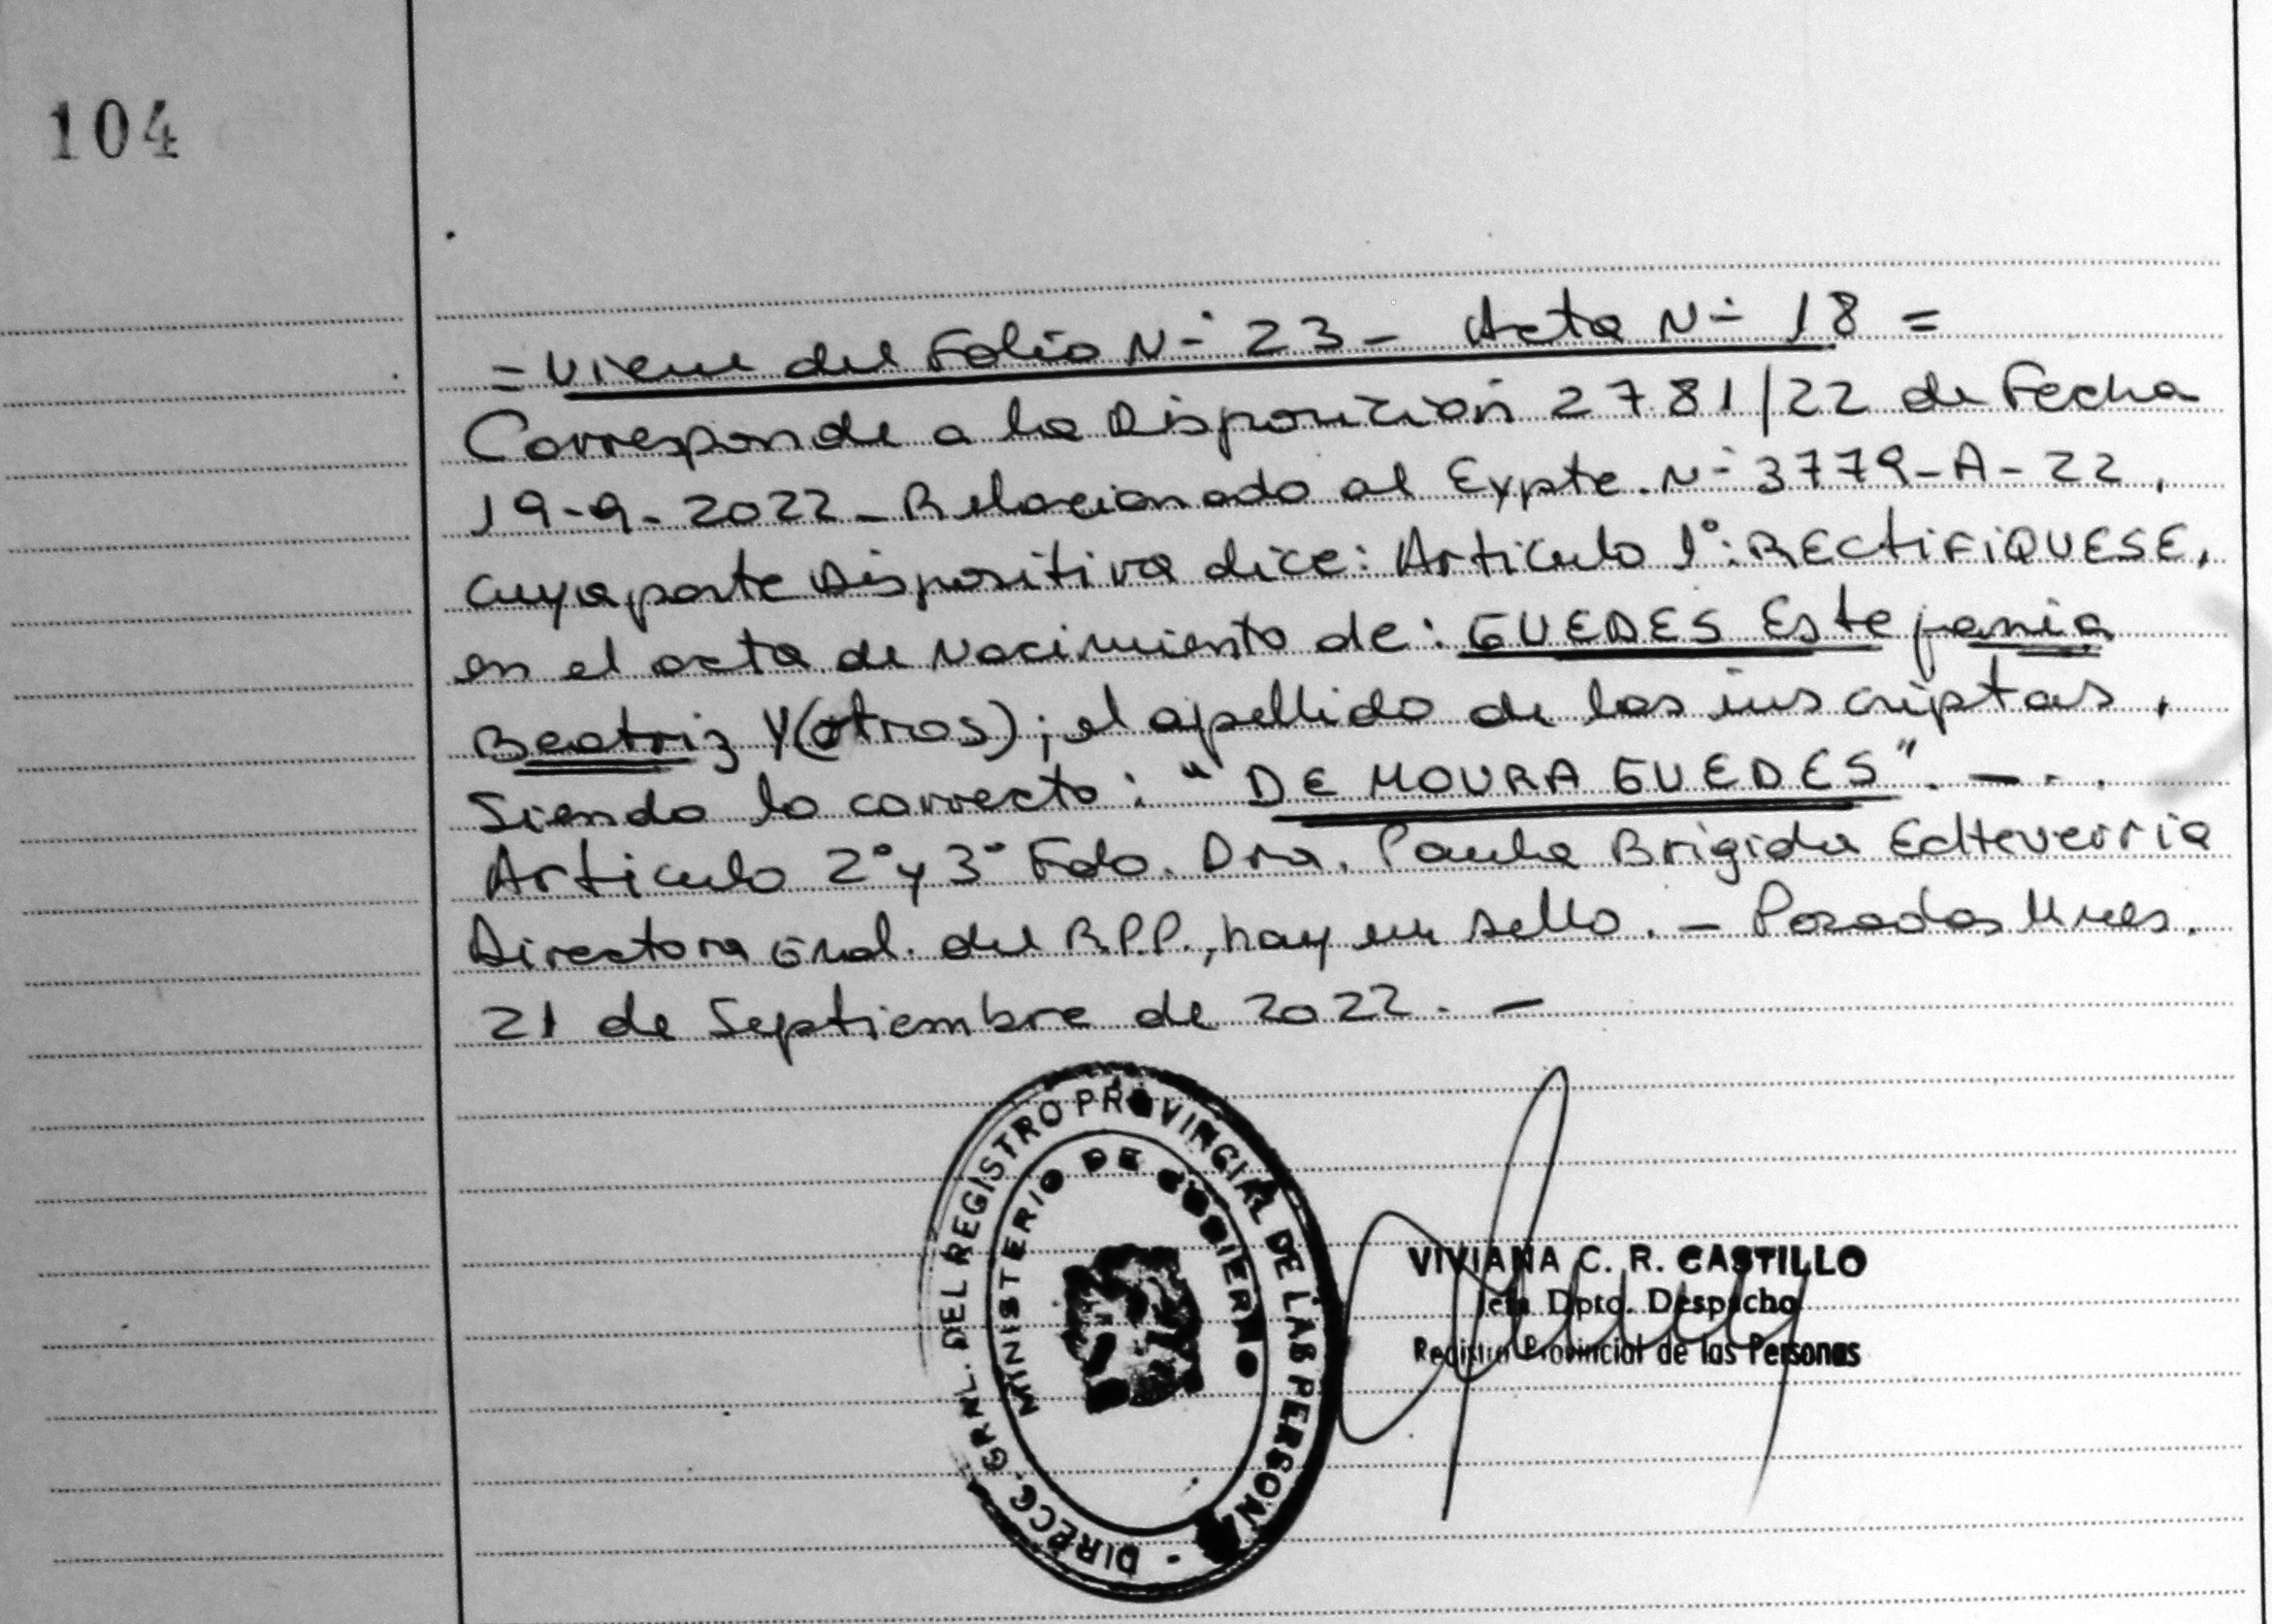 104
= Viene del Folio N° 23 - Acta N° 18 =
Corresponde a la Disposición 2781/22 de Fecha
19-9-2022 - Relacionado al Expte. N° 3779-A-22,
cuya parte Dispositiva dice: Articulo 1°: RECTIFIQUESE,
en el acta de Nacimiento de: GUEDES Estefania
Beatriz Y(otros); el apellido de las inscriptas,
siendo lo correcto: "DE MOURA GUEDES". - . .
Articulo 2° y 3° Fdo. Dra. Paula Brigida Echeverria
Directora Gral. del R.P.P., hay un sello. - Posadas Mnes.
21 de Septiembre de 2022. -
DIRECC. GRAL. DEL REGISTRO PROVINCIAL DE LAS PERSONAS
MINISTERIO DE GOBIERNO
VIVIANA C. R. CASTILLO
Jefa Dpto. Despacho
Registro Provincial de las Personas